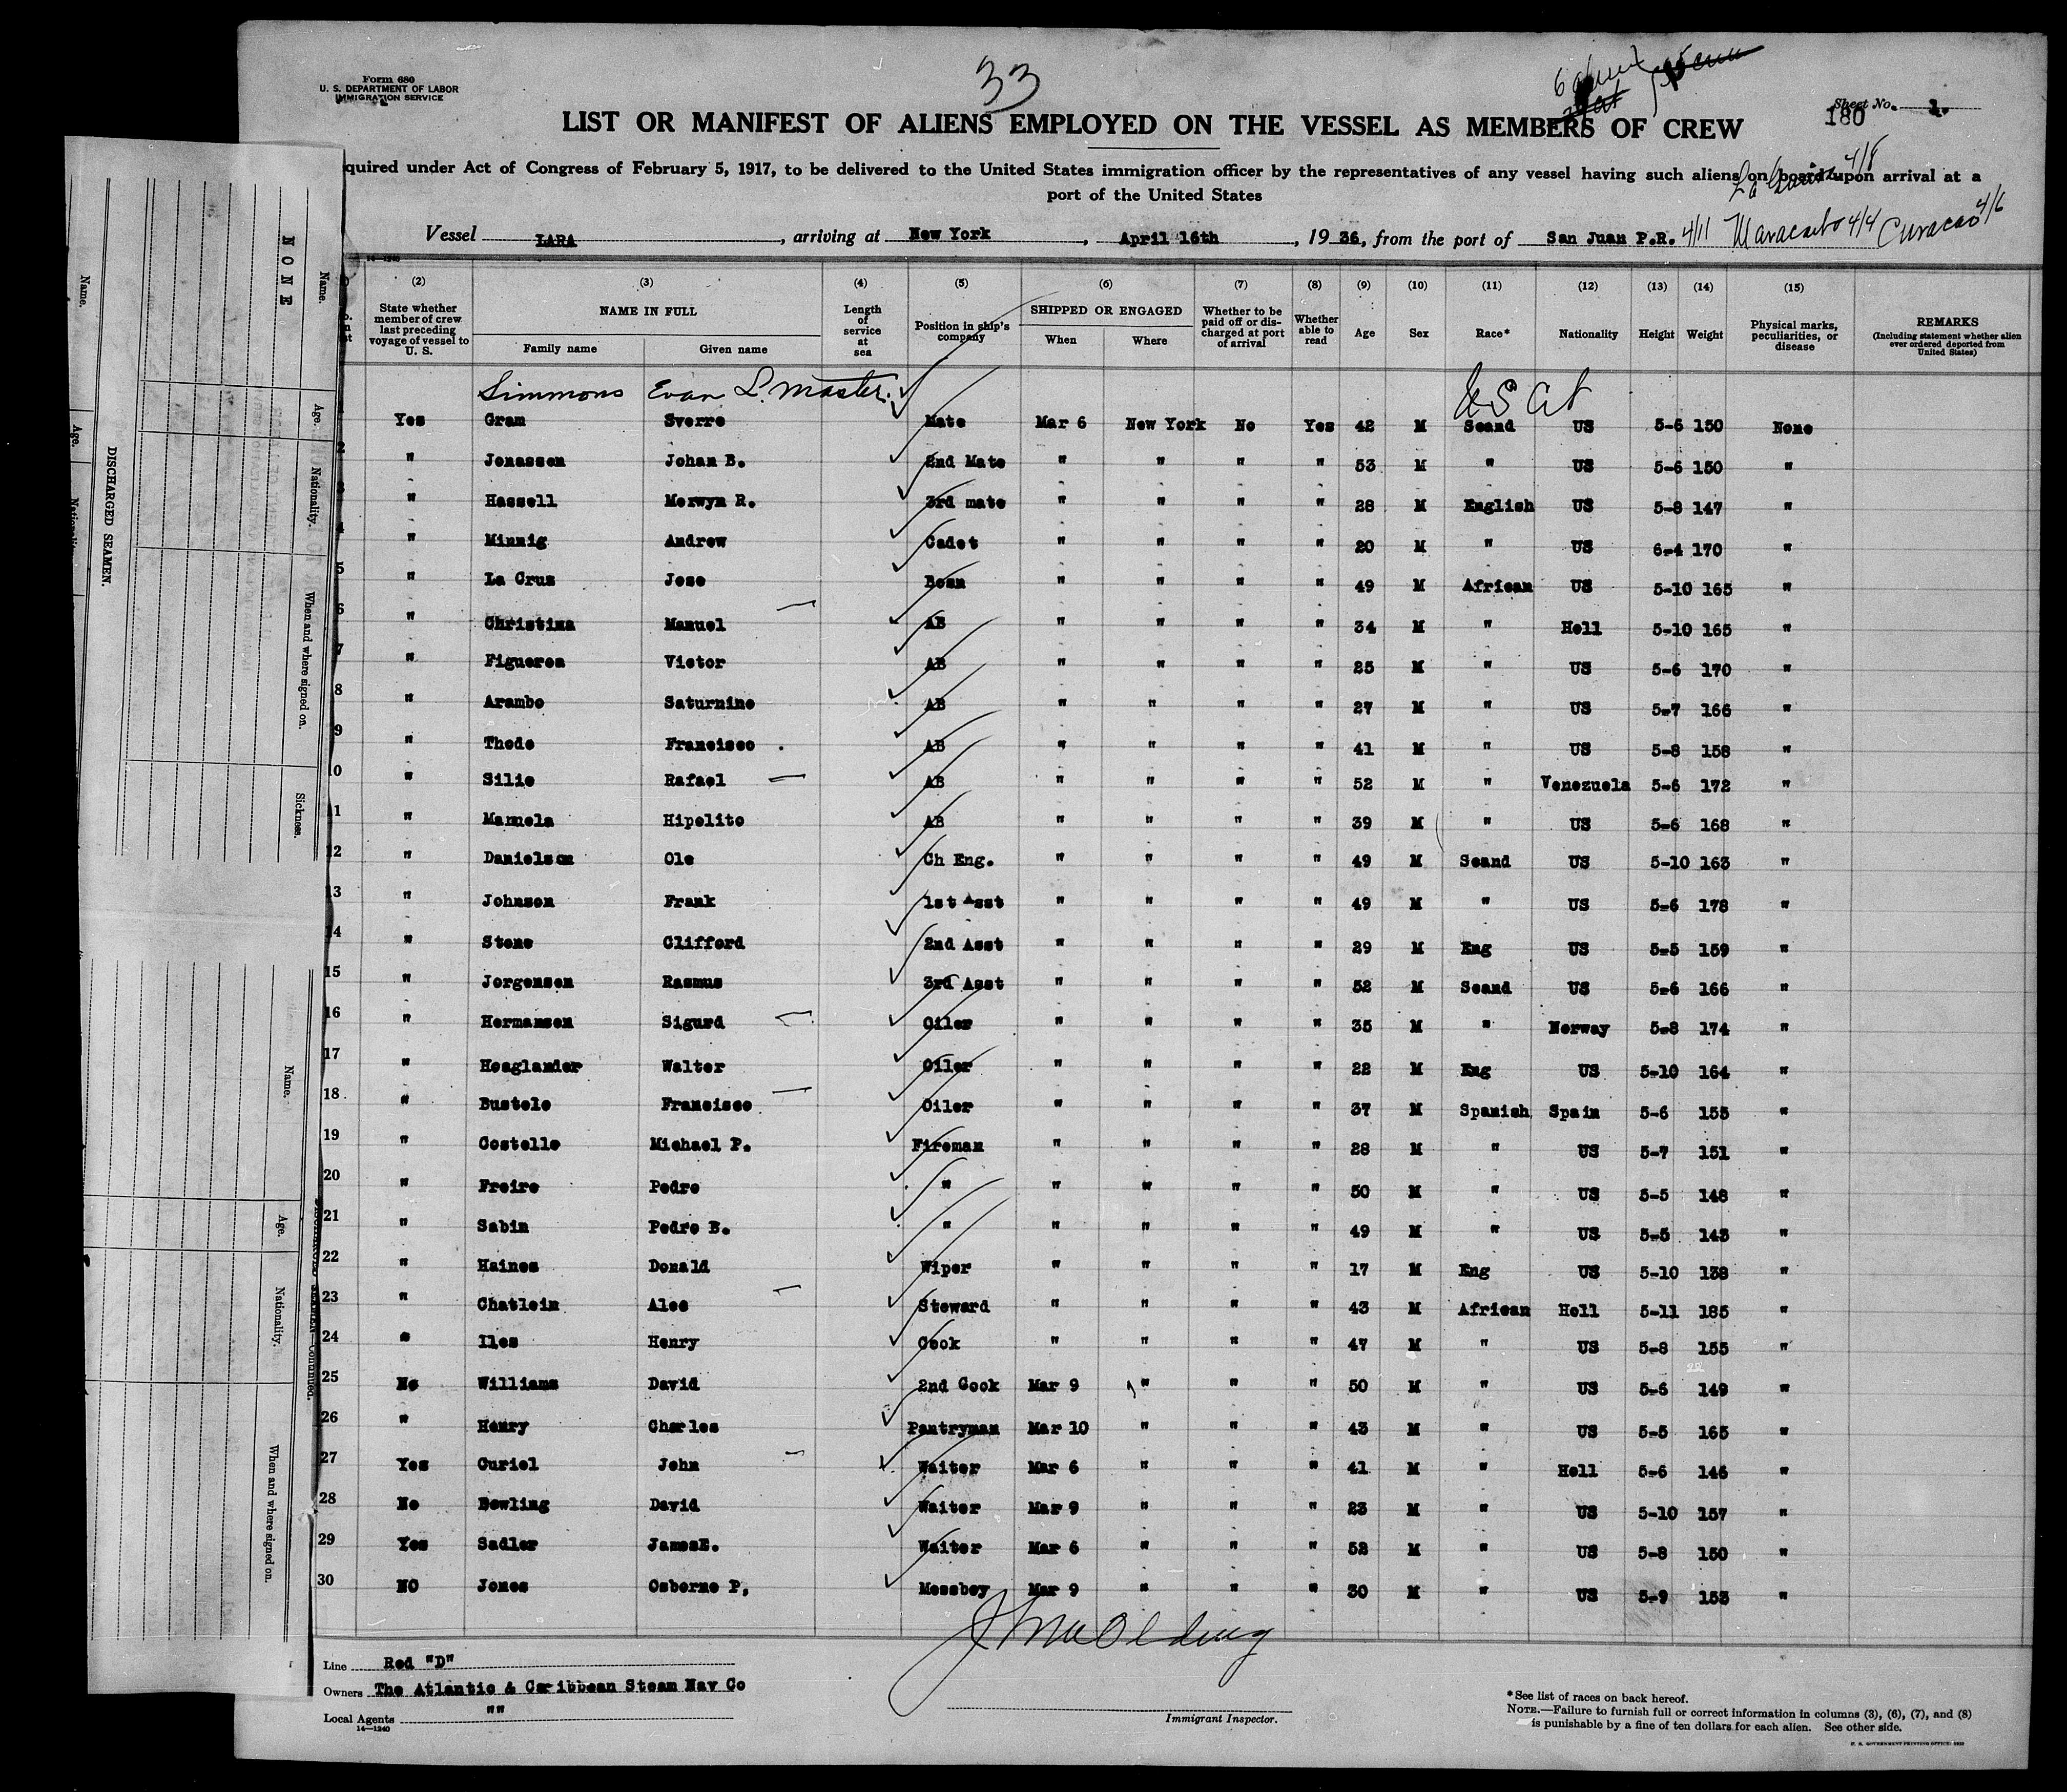 33
Form 680
U. S. DEPARTMENT OF LABOR
IMMIGRATION SERVICE
Sheet No. 1.
180
LIST OR MANIFEST OF ALIENS EMPLOYED ON THE VESSEL AS MEMBERS OF CREW
quired under Act of Congress of February 5, 1917, to be delivered to the United States immigration officer by the representatives of any vessel having such aliens on board upon arrival at a
port of the United States
La Guaira 4/8
Vessel LARA, arriving at New York, April 16th, 1936, from the port of San Juan P.R. 4/11 Maracaibo 4/4 Curacao 4/6
14—1240
(2) (3) (4) (5) (6) (7) (8) (9) (10) (11) (12) (13) (14) (15)
State whether member of crew last preceding voyage of vessel to U. S. NAME IN FULL Family name Given name Length of service at sea Position in ship's company SHIPPED OR ENGAGED When Where Whether to be paid off or discharged at port of arrival Whether able to read Age Sex Race* Nationality Height Weight Physical marks, peculiarities, or disease REMARKS (Including statement whether alien ever ordered deported from United States)
Simmons Evan L. Master. US Cit
Yes Gram Sverre Mate Mar 6 New York No Yes 42 M Scand US 5-6 150 None
2 " Jonassen Johan B. 2nd Mate " " " " 53 M " US 5-6 150 "
3 " Hassell Merwyn R. 3rd mate " " " " 28 M English US 5-8 147 "
4 " Minnig Andrew Cadet " " " " 20 M " US 6-4 170 "
5 " La Cruz Jose Bosn " " " " 49 M African US 5-10 165 "
6 " Christina Manuel AB " " " " 34 M " Holl 5-10 165 "
7 " Figueroa Victor AB " " " " 25 M " US 5-6 170 "
8 " Arambo Saturnino AB " " " " 27 M " US 5-7 166 "
9 " Thode Francisco AB " " " " 41 M " US 5-8 158 "
10 " Silie Rafael AB " " " " 52 M " Venezuela 5-6 172 "
11 " Manuela Hipolito AB " " " " 39 M " US 5-6 168 "
12 " Danielson Ole Ch Eng. " " " " 49 M Scand US 5-10 163 "
13 " Johnson Frank 1st Asst " " " " 49 M " US 5-6 178 "
14 " Stone Clifford 2nd Asst " " " " 29 M Eng US 5-5 159 "
15 " Jorgensen Rasmus 3rd Asst " " " " 52 M Scand US 5-6 166 "
16 " Hermansen Sigurd Oiler " " " " 35 M " Norway 5-8 174 "
17 " Hoaglander Walter Oiler " " " " 22 M Eng US 5-10 164 "
18 " Bustelo Francisco Oiler " " " " 37 M Spanish Spain 5-6 155 "
19 " Costello Michael P. Fireman " " " " 28 M " US 5-7 151 "
20 " Freire Pedro " " " " " 50 M " US 5-5 148 "
21 " Sabin Pedro B. " " " " " 49 M " US 5-5 143 "
22 " Haines Donald Wiper " " " " 17 M Eng US 5-10 138 "
23 " Chatlein Alec Steward " " " " 43 M African Holl 5-11 185 "
24 " Iles Henry Cook " " " " 47 M " US 5-8 155 "
25 No Williams David 2nd Cook Mar 9 " " " 50 M " US 5-6 149 "
26 " Henry Charles Pantryman Mar 10 " " " 43 M " US 5-5 165 "
27 Yes Curiel John Waiter Mar 6 " " " 41 M " Holl 5-6 146 "
28 No Dowling David Waiter Mar 9 " " " 23 M " US 5-10 157 "
29 Yes Sadler JamesE. Waiter Mar 6 " " " 52 M " US 5-8 150 "
30 NO Jones Osborne P, Messboy Mar 9 " " " 30 M " US 5-9 153 "
Line Red "D"
Owners The Atlantic & Caribbean Steam Nav Co
Local Agents ""
14—1240
Immigrant Inspector.
*See list of races on back hereof.
NOTE.—Failure to furnish full or correct information in columns (3), (6), (7), and (8)
is punishable by a fine of ten dollars for each alien. See other side.
DISCHARGED SEAMEN.
NONE
Name. Age. Nationality. When and where signed on. Sickness.
Name. Age. Nationality. When and where signed on.
Name.
Age.